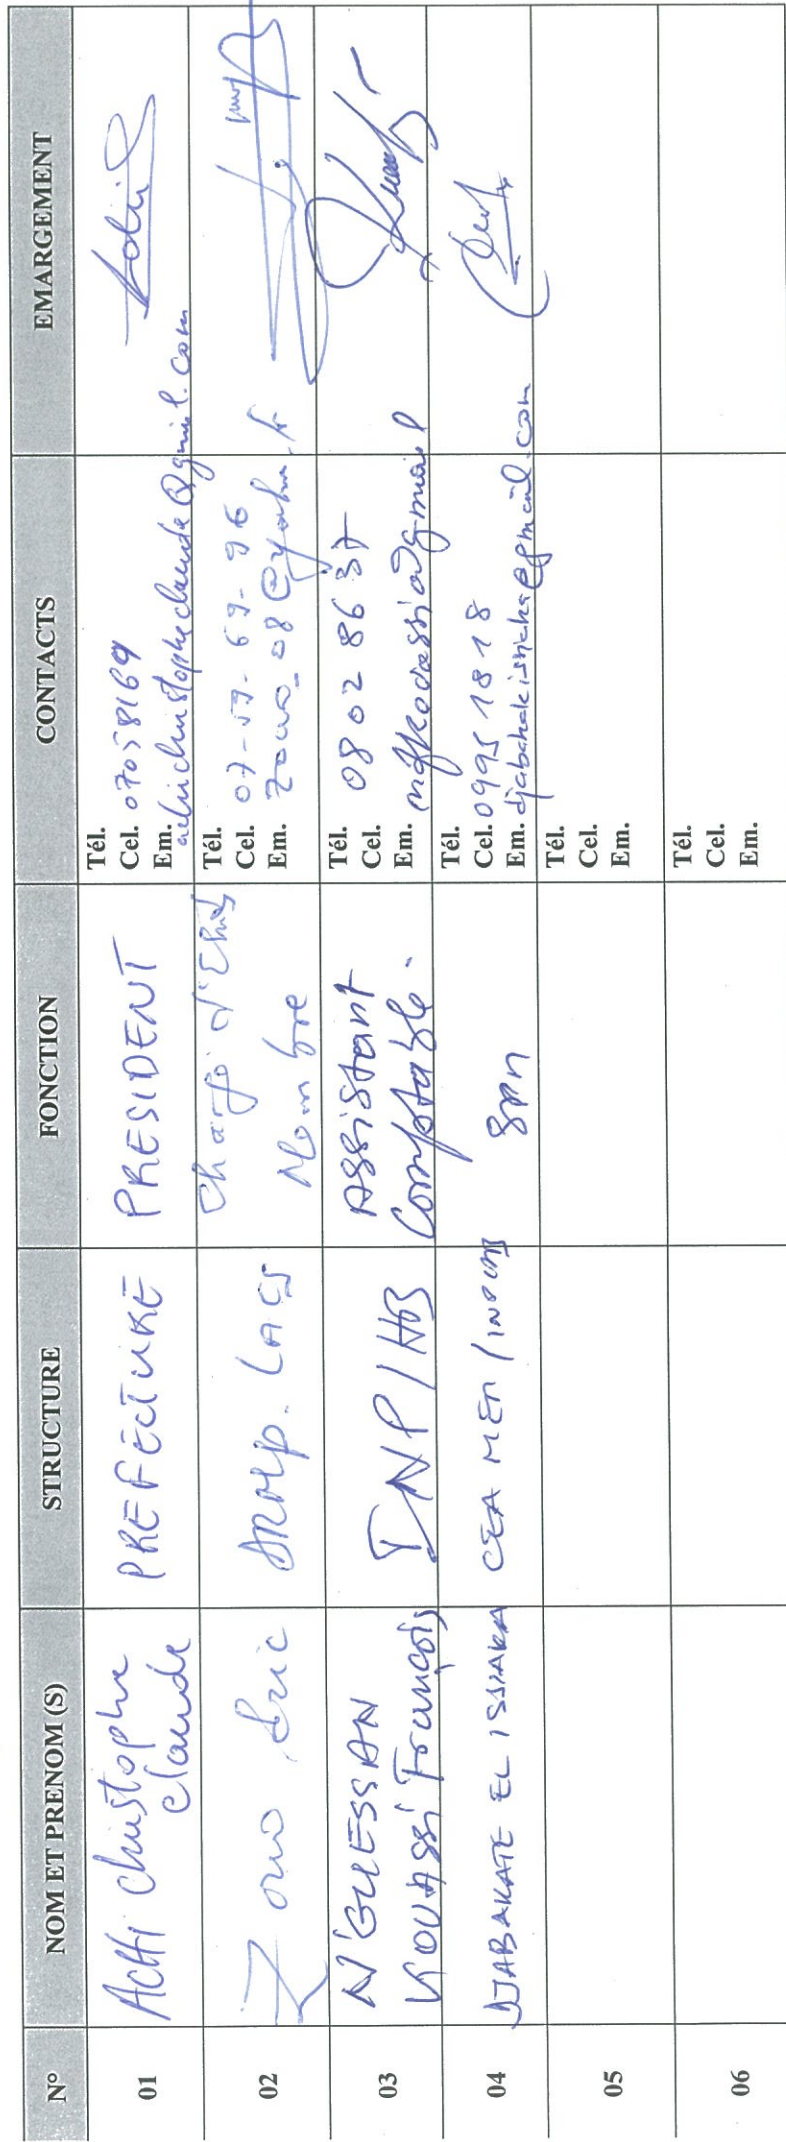 N° NOM ET PRENOM (S) STRUCTURE FONCTION CONTACTS EMARGEMENT
01
ACHI Christophe
Claude
PREFECTURE
PRESIDENT
Tél.
Cel. 07058169
Em. achichristopheclaude@gmail.com
02
Zouo Eric
ARMP. LACS
Chargé d'Etudes
Membre
Tél.
Cel. 07-59-69-96
Em.
03
N'GUESSAN
KOUASSI François
INP/HB
ASSistant
Comptable.
Tél.
Cel. 08028637
Em.
04
DJABAKATE EL ISSIAKA
CEA MEM/INPHB
SPM
Tél.
Cel. 09951818
Em.
05
Tél.
Cel.
Em.
06
Tél.
Cel.
Em.